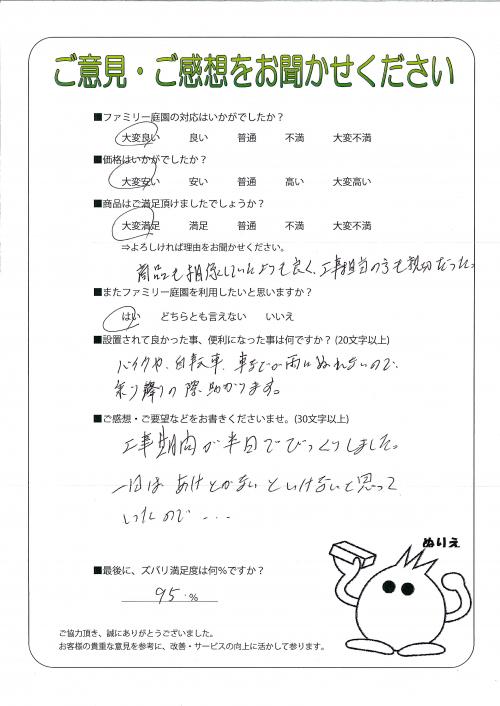 ご意見・ご感想をお聞かせください
■ファミリー庭園の対応はいかがでしたか？
大変良い 良い 普通 不満 大変不満
■価格はいかがでしたか？
大変安い 安い 普通 高い 大変高い
■商品はご満足頂けましたでしょうか？
大変満足 満足 普通 不満 大変不満
⇒よろしければ理由をお聞かせください。
商品も想像していたよりも良く、工事担当の方も親切だった。
■またファミリー庭園を利用したいと思いますか？
はい どちらとも言えない いいえ
■設置されて良かった事、便利になった事は何ですか？(20文字以上)
バイクや、自転車、車などが雨にぬれないので、
乗り降りの際、助かります。
■ご感想・ご要望などをお書きくださいませ。(30文字以上)
工事期間が半日でびっくりしました。
一日は あけとかないといけないと思って
いったので・・・
ぬりえ
■最後に、ズバリ満足度は何％ですか？
95.％
ご協力頂き、誠にありがとうございました。
お客様の貴重な意見を参考に、改善・サービスの向上に活かして参ります。